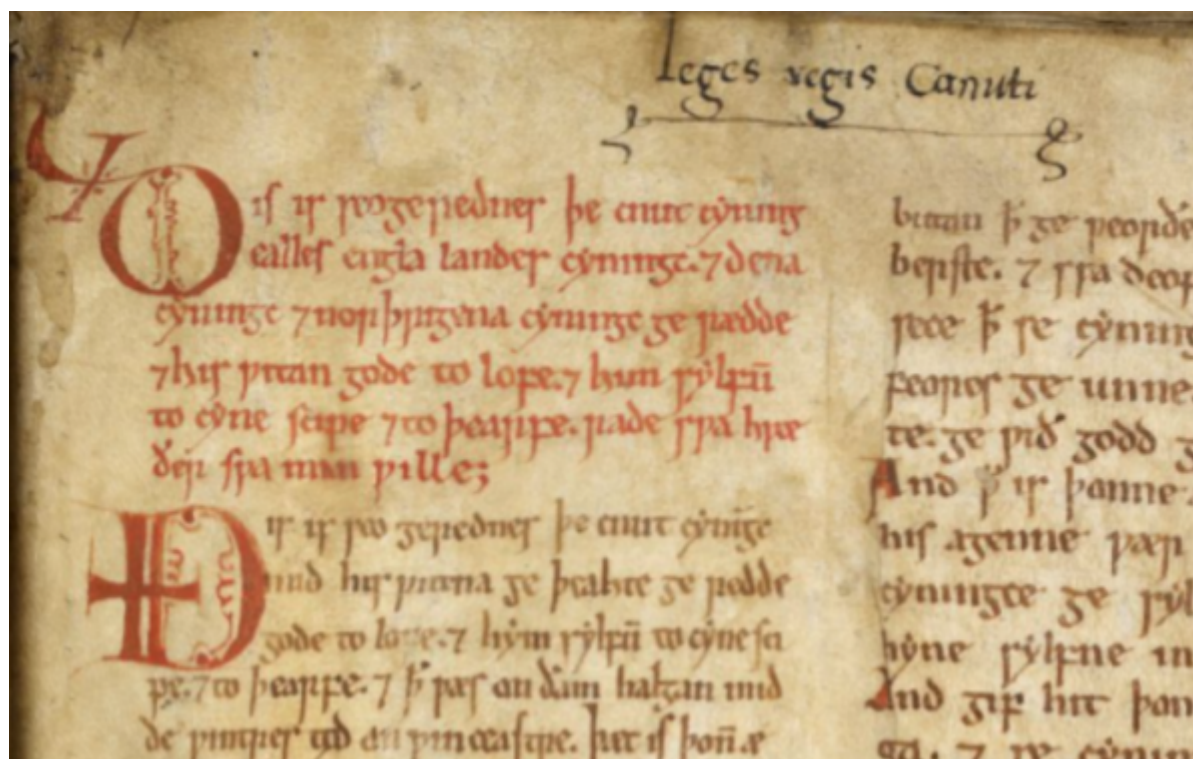 Leges regis Canuti
Ðis is seo gerednes þe cnut cyning
ealles engla landes cyninge. ⁊ dena
cyninge ⁊ norþrigena cyninge ge rædde
⁊ his witan gode to lofe. ⁊ him sylfū
to cyne scipe ⁊ to þearffe. rade swa hwe
ðer swa man wille;
Ðis is seo gerednes þe cnut cynīge
mid his witena ge þeahte ge redde
gode to lofe. ⁊ hym sylfū to cyne sci
pe. ⁊ to þearffe. ⁊ þ̄ wæs on ðam halgan mid
de wintres on wincæstre. Het is þonn̄ æ
butan þ̄ ge weorðe
⁊ swa deop
sece þ̄ se cyning
ge unne
te. ge wið godd
And þ̄ is þanne
his agenne
cyningte ge syl
hyne sylfne in
And gif hit þon